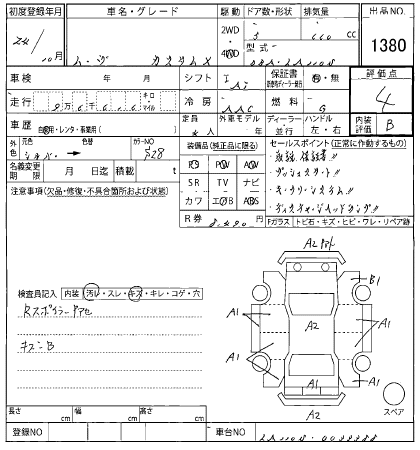 初度登録年月 車名・グレード 駆動 ドア数・形状 排気量 出品NO.
24/10月 ムーヴ カスタムX 2WD 5 660 cc 1380
4WD 型式
車検 年 月 シフト I AT 保証書 有・無 評価点
走行 キロ マイル 冷房 AAC 燃料 G 4
車歴 自家用・レンタ・事業用( ) 定員 人 外車モデル 年 ディーラー 並行 ハンドル 左・右 内装評価 B
外色 元色 シルバー 色替 カラーNO S28 装備品(純正品に限る) セールスポイント(正常に作動するもの)
名義変更期限 月 日迄 積載 t PS PW AW 取説、保証書!!
注意事項(欠品・修復・不具合箇所および状態) SR TV ナビ プッシュスタート!!
カワ エアB ABS キーフリーシステム!!
R券 円
Fガラス トビ石・キズ・ヒビ・ワレ・リペア跡
A2
B1
検査員記入 内装 汚レ・スレ・キズ・キレ・コゲ・穴
A1 A2 A1
キズ=B
A1
A1 A1
A2 スペア
長さ cm 幅 cm 高さ cm
登録NO 車台NO